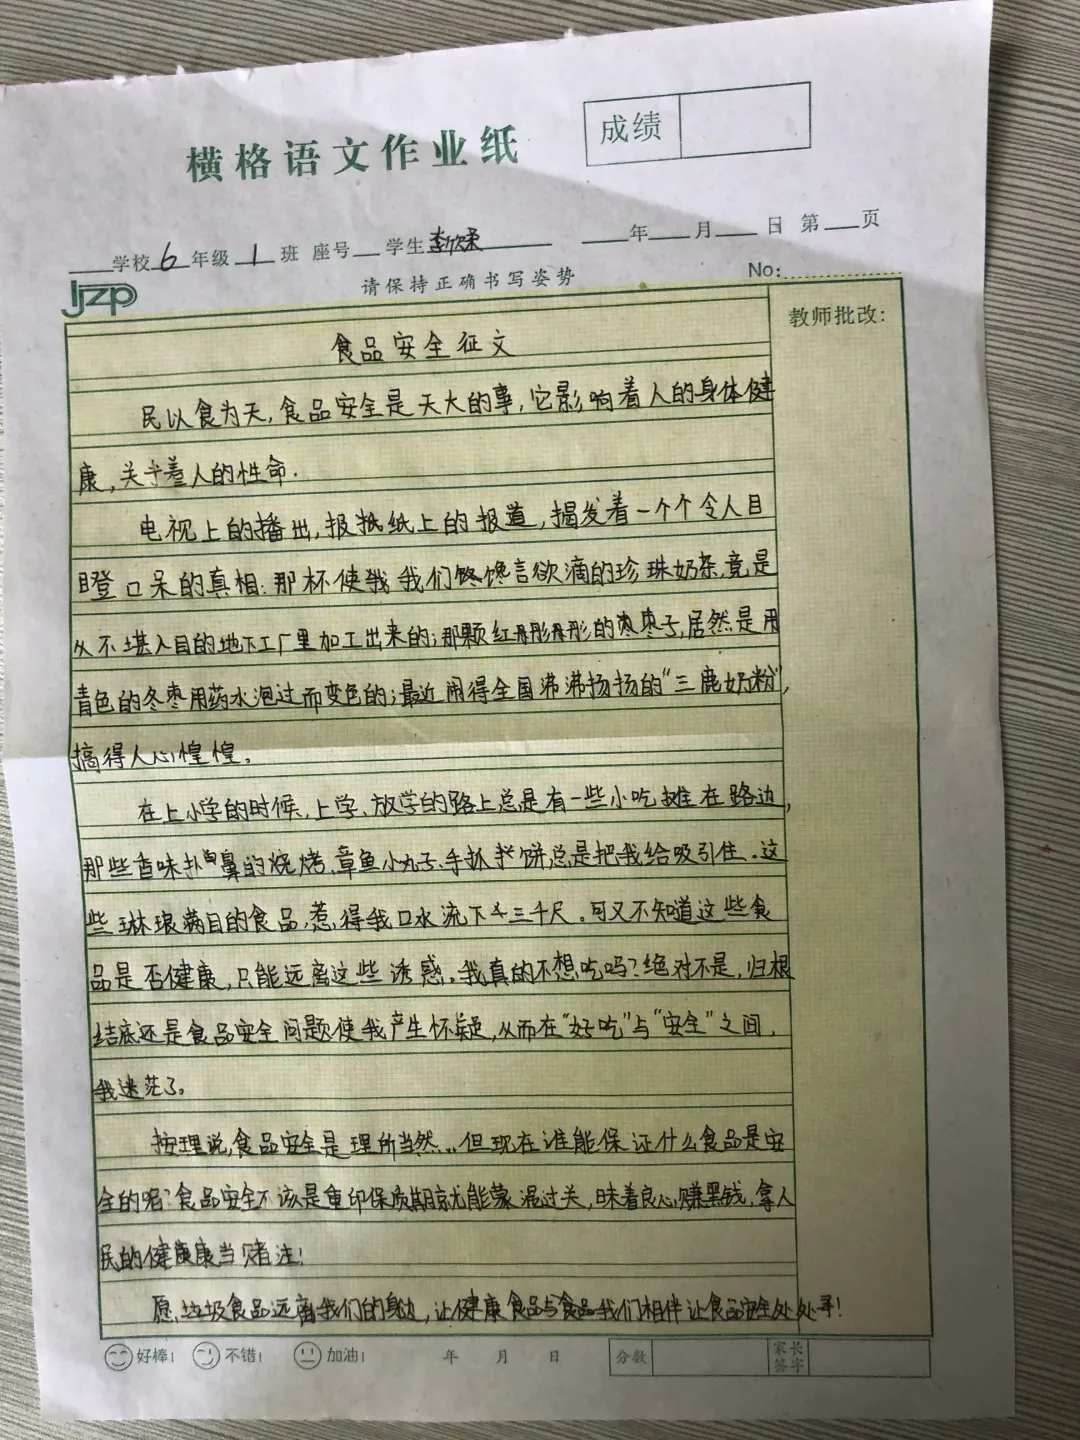 成绩
横格语文作业纸
学校 6 年级 1 班 座号 学生 李欣柔 年 月 日 第 页
ljzp
请保持正确书写姿势
No:
教师批改:
食品安全征文
民以食为天,食品安全是天大的事,它影响着人的身体健
康,关乎着人的性命.
电视上的播出,报纸上的报道,揭发着一个个令人目
瞪口呆的真相:那杯使我们馋言欲滴的珍珠奶茶,竟是
从不堪入目的地下工厂里加工出来的;那颗红彤彤的枣子,居然是用
青色的冬枣用药水泡过而变色的;最近闹得全国沸沸扬扬的“三鹿奶粉”,
搞得人心惶惶。
在上小学的时候,上学、放学的路上总是有一些小吃摊在路边,
那些香味扑鼻的烧烤、章鱼小丸子、手抓饼总是把我给吸引住.这
些琳琅满目的食品,惹得我口水流下三千尺.可又不知道这些食
品是否健康,只能远离这些诱惑。我真的不想吃吗?绝对不是,归根
结底还是食品安全问题使我产生怀疑,从而在“好吃”与“安全”之间,
我迷茫了。
按理说,食品安全是理所当然..但现在谁能保证什么食品是安
全的呢?食品安全不该是重印保质期就能蒙混过关,昧着良心赚黑钱,拿人
民的健康当赌注!
愿垃圾食品远离我们的身边,让健康食品与我们相伴让食品安全处处寻!
好棒! 不错! 加油! 年 月 日 分数 家长签字